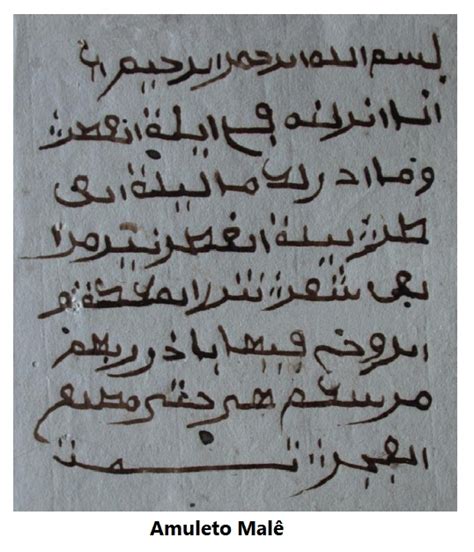 بسم الله الرحمن الرحيم
انا انزلنه في ليلة القدر
وما ادريك ما ليلة الق
در ليلة القدر خير من ا
لف شهر تنزل الملئكة و
الروح فيها باذن ربهم
سلم هي حتى مطلع
الفجر تمت
Amuleto Malê